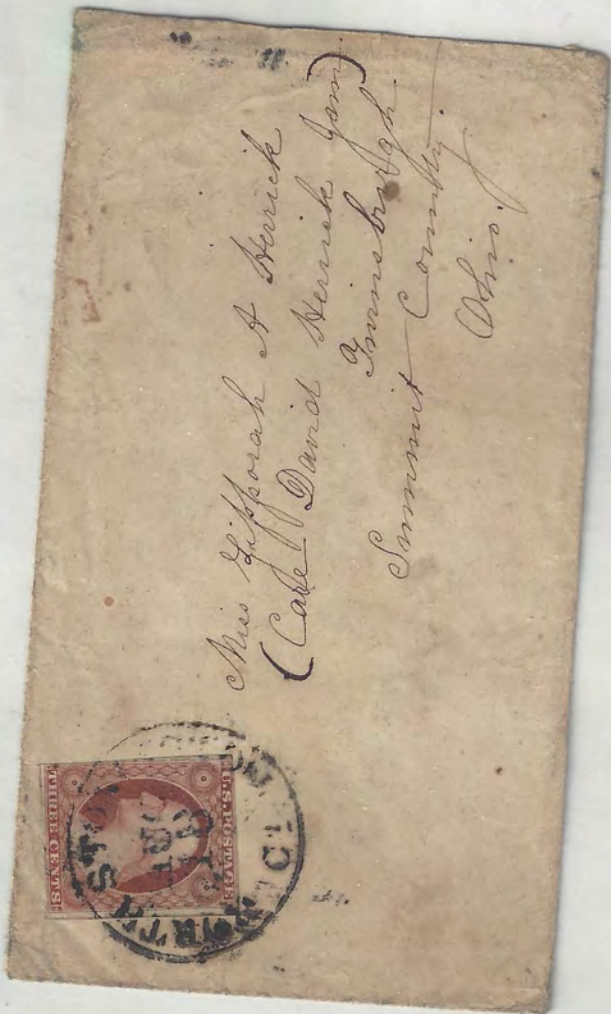 Miss Zipporah A Herrick
(Care David Herrick
Twinsburgh
Summit County
Ohio.
U.S. POSTAGE
THREE CENTS
NORTH STO
CT